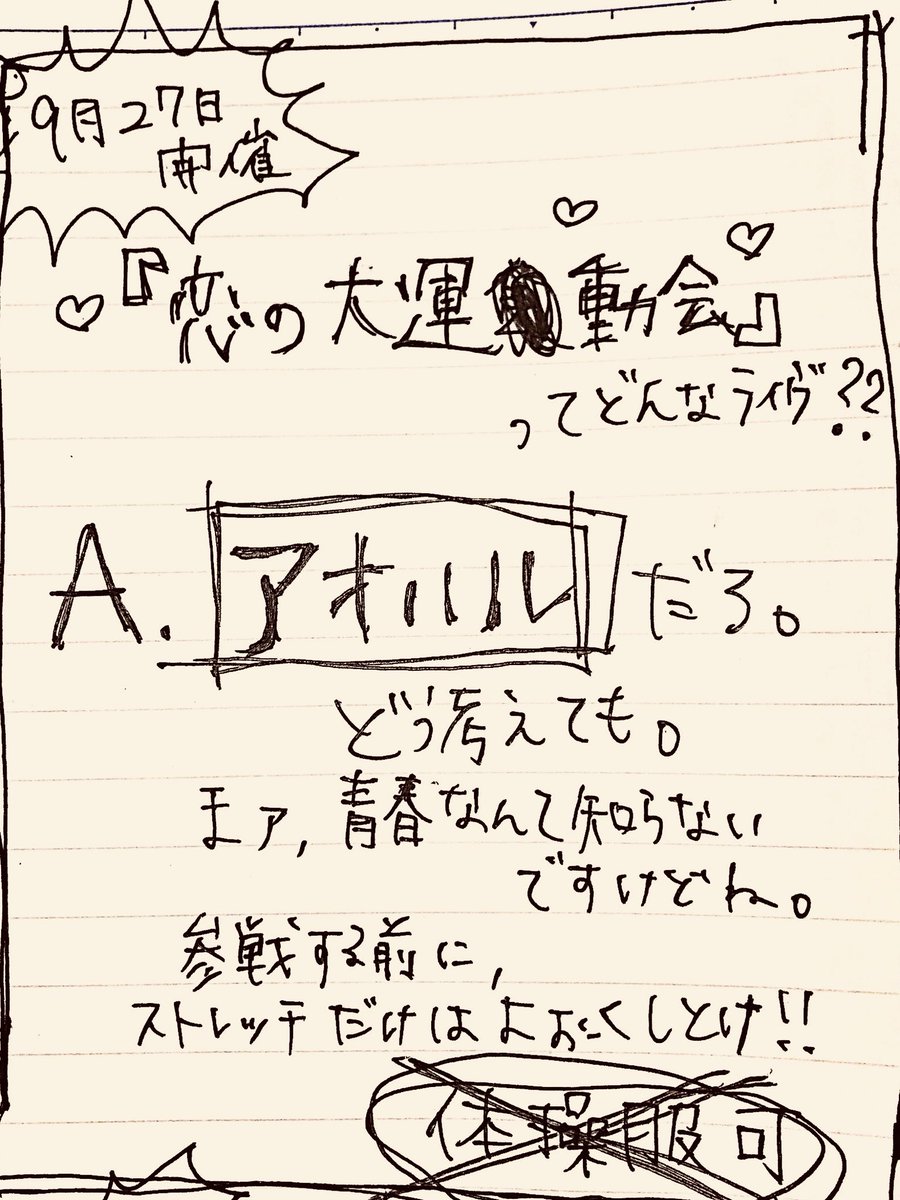 9月27日
開催
『恋の大運動会』
ってどんなライヴ??
A. アオハル だろ。
どう考えても。
まァ, 青春なんて知らない
ですけどね。
参戦する前に,
ストレッチだけはよおくしとけ!!
体操服可